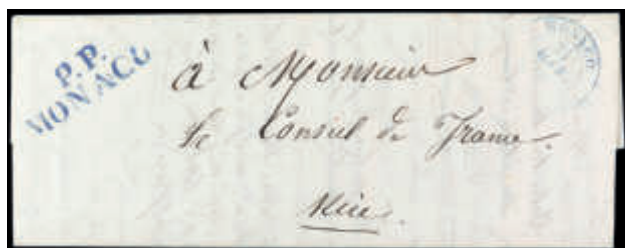 P.P.
MONACO
MONACO
à Monsieur
Le Consul de France.
Nice.